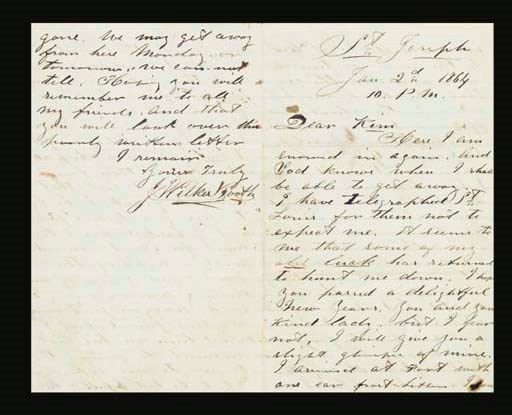 St. Joseph
Jan 2nd 1864
10. P. M.
Dear Kim
Here I am
snowed in again. And
God knows when I shal
be able to get away.
I have telegraphed St.
Louis for them not to
expect me. It seems to
me that some of my
old luck has returned
to hunt me down. I hope
you passed a delightful
New Years. you and you
kind lady. but I fear
not, I will give you a
slight glimpse of mine.
I arrived at Fort with
one ear frost-bitten I
gone. We may get away
from here Monday or
tomorrow, we can not
tell. Hoping you will
remember me to all
my friends. and that
you will look over this
poorly written letter
I remain
Yours Truly
J. Wilkes Booth